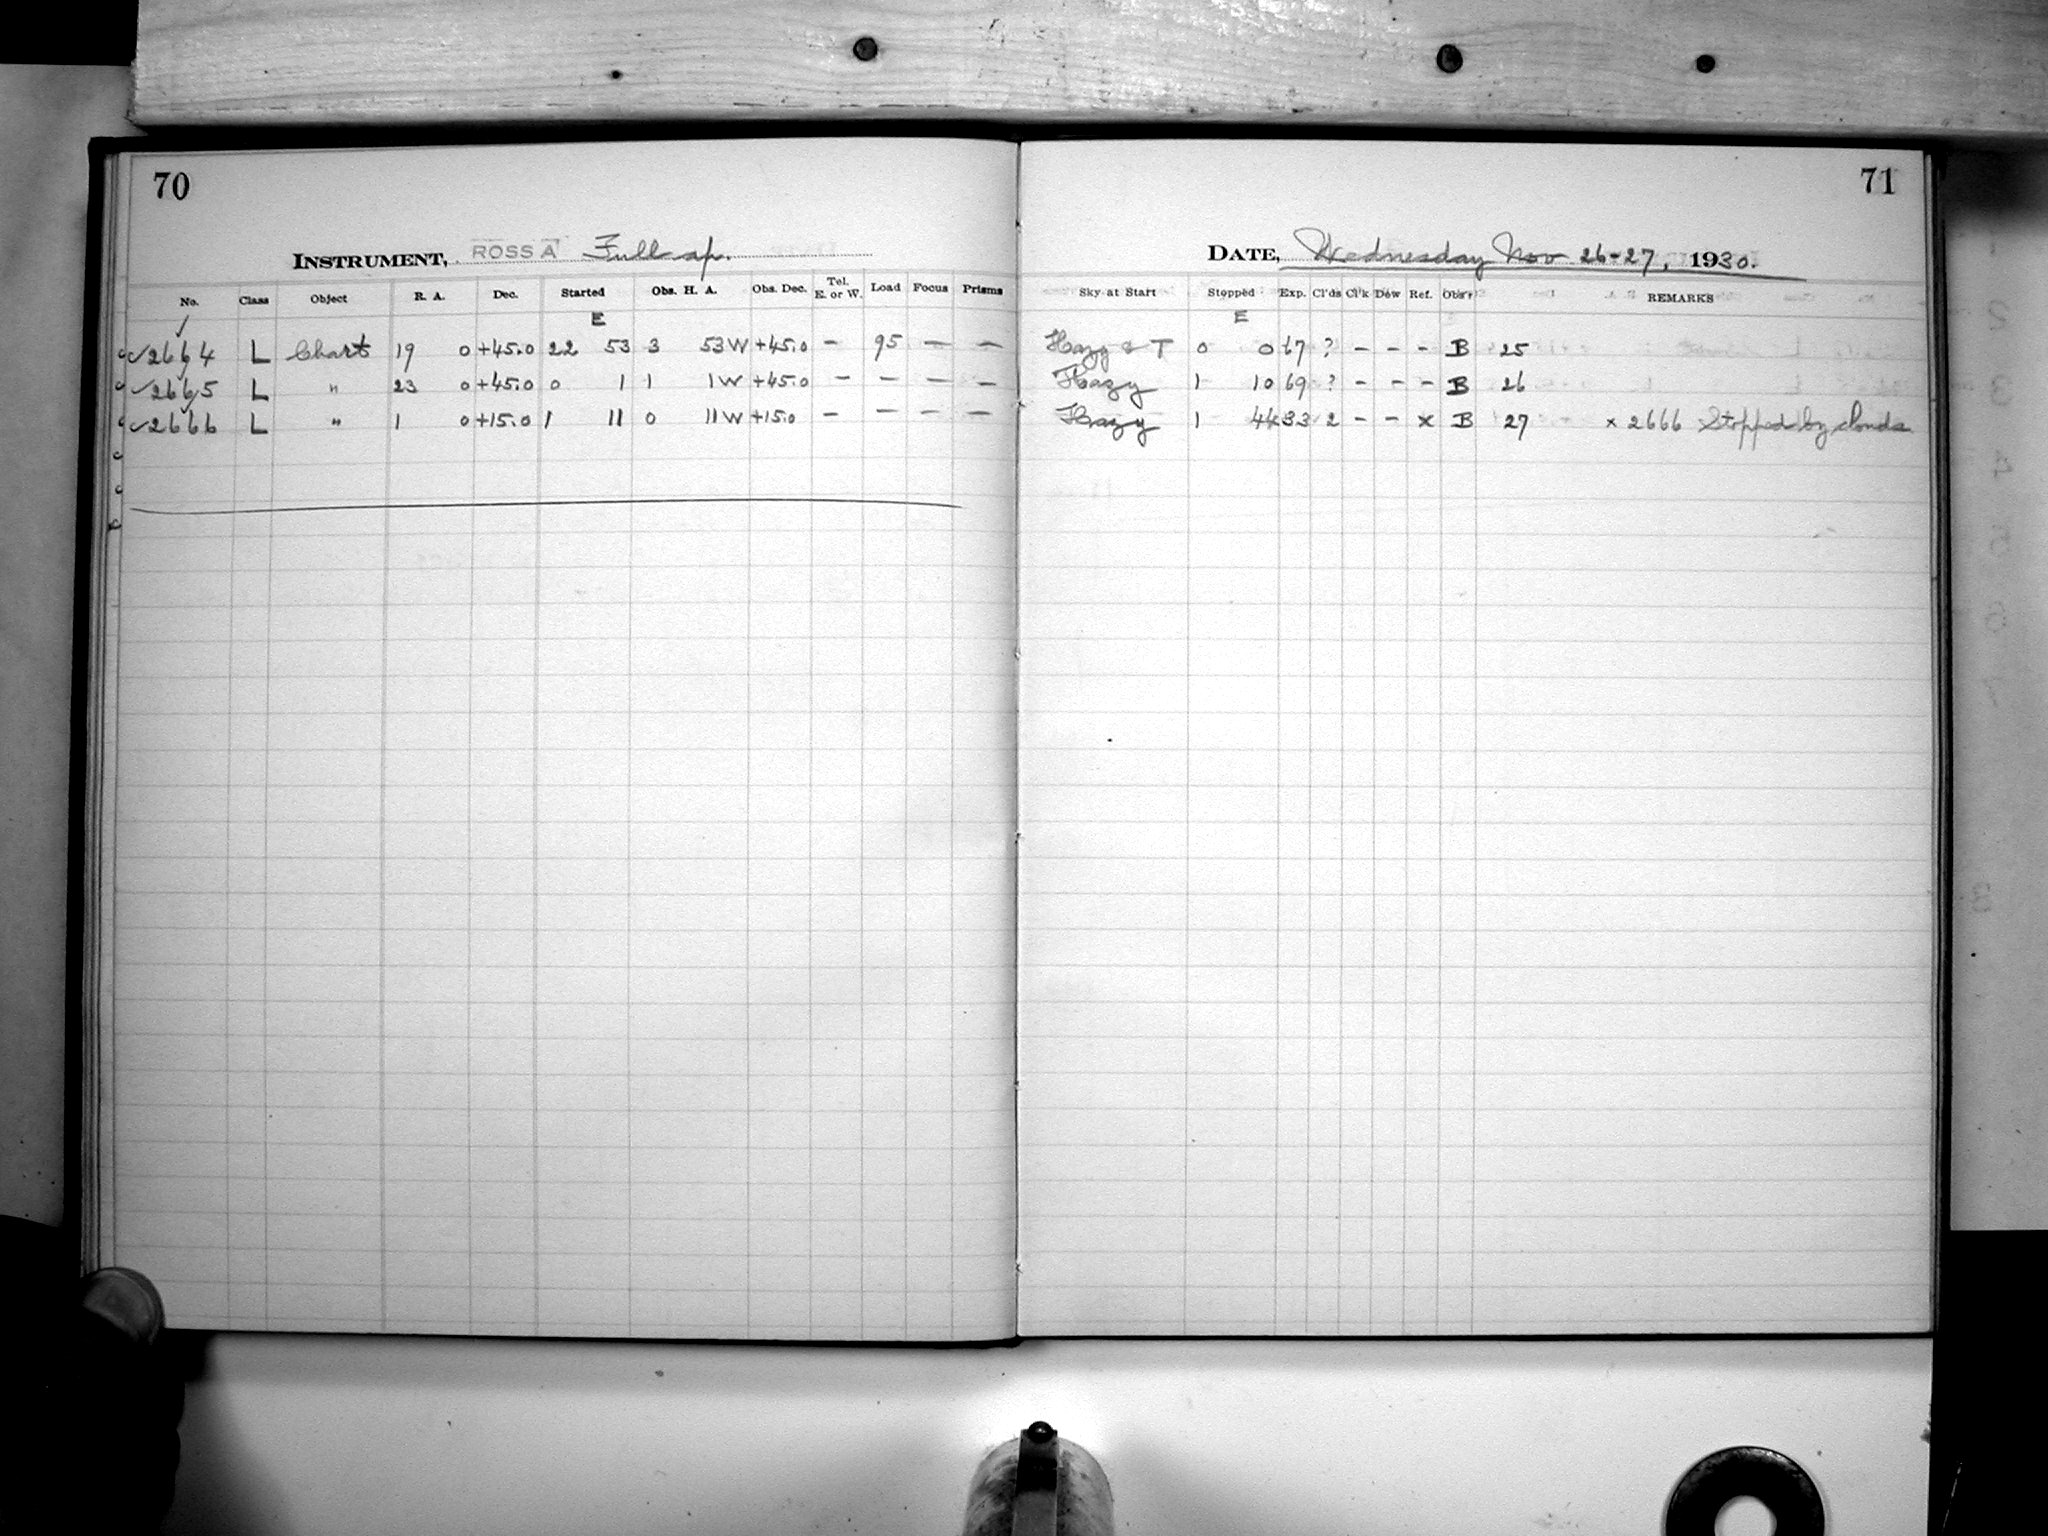 70
INSTRUMENT, ROSS A Full ap.
No. Class Object R. A. Dec. Started Obs. H. A. Obs. Dec. Tel. E. or W. Load Focus Prisms
E
✓2664 L Chart 19 0 +45.0 22 53 3 53W +45.0 – 95 – –
✓2665 L " 23 0 +45.0 0 1 1 1W +45.0 – – – –
✓2666 L " 1 0 +15.0 1 11 0 11W +15.0 – – – –
71
DATE, Wednesday Nov 26-27, 1930.
Sky at Start Stopped Exp. Cl'ds Cl'k Dew Ref. Obs'r REMARKS
E
Hazy & T 0 0 67 ? – – – B 25
Hazy 1 10 69 ? – – – B 26
Hazy 1 44 33 2 – – x B 27 x 2666 Stopped by clouds